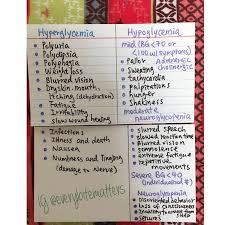 Hyperglycemia
• Polyuria
• Polydipsia
• Polyphagia
• Weight loss
• Blurred vision
• Dry skin, mouth,
itching (dehydration)
• Fatigue
• Irritability
• slow wound healing
• Infections
• Illness and death
• Nausea
• Numbness and Tingling
(damage to nerves)
IG @everynotematters
Hypoglycemia
mild (BG <70 or
<100 w/ symptoms)
• Pallor
• Sweating
• tachycardia
• Palpitations
• hunger
• Shakiness
Adrenergic
Cholinergic
moderate
neuroglycopenia
• slurred speech
• slowed function time
• Blurred vision
• somnolence
• extreme fatigue
• repetitive
movements
Severe BG <40
(individualized #)
• Disoriented behavior
• loss of consciousness
• seizures